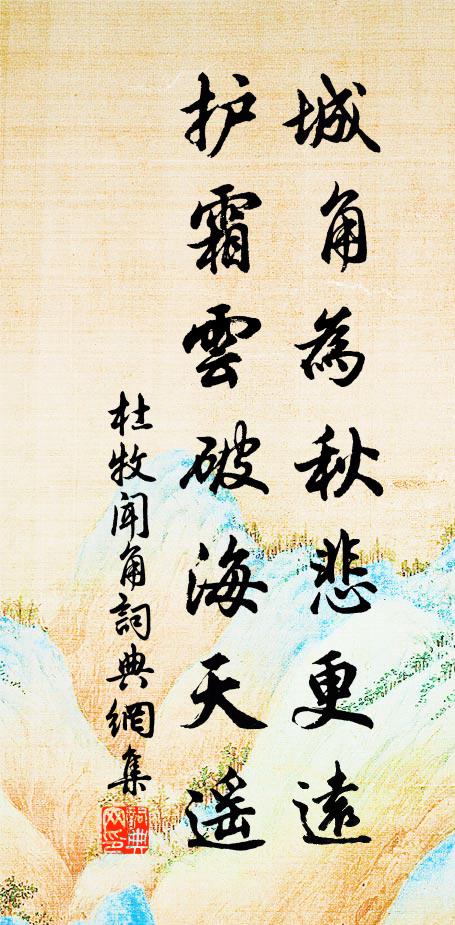 城角為秋悲更遠
护霜雲破海天遥
杜牧闻角詞典網集
詞典